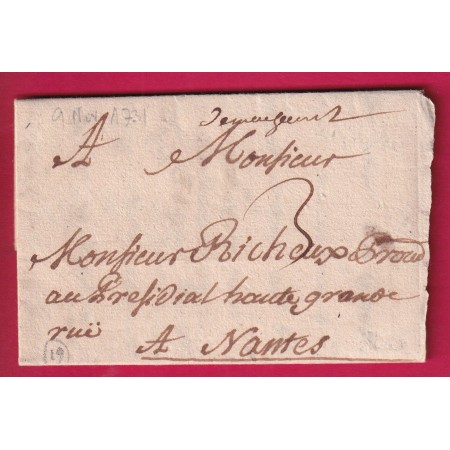 9 Nov 1731
A Monsieur
3
Monsieur Richeux
au Presidial haute grande
ruë
A Nantes
19